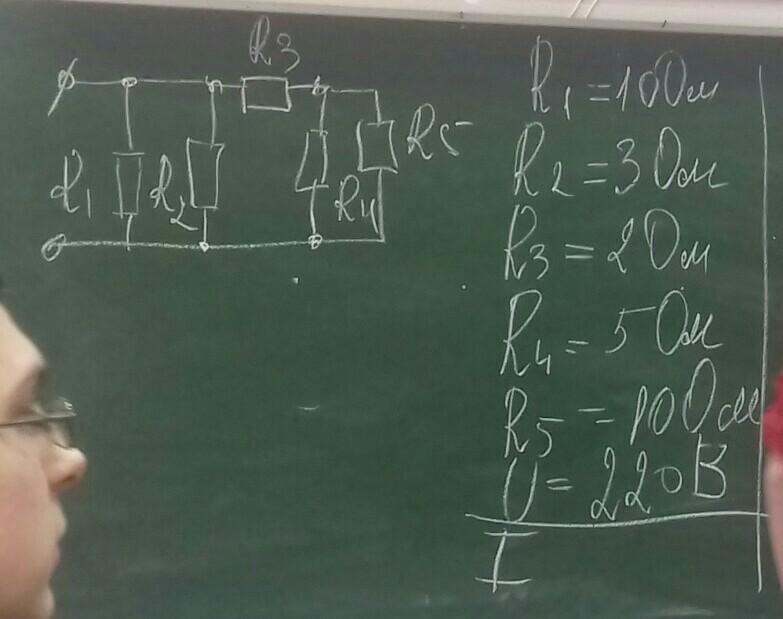 R3
R1
R2
R4
R5
R1=10Ом
R2=3Ом
R3=2Ом
R4=5Ом
R5=10Ом
U=220В
I